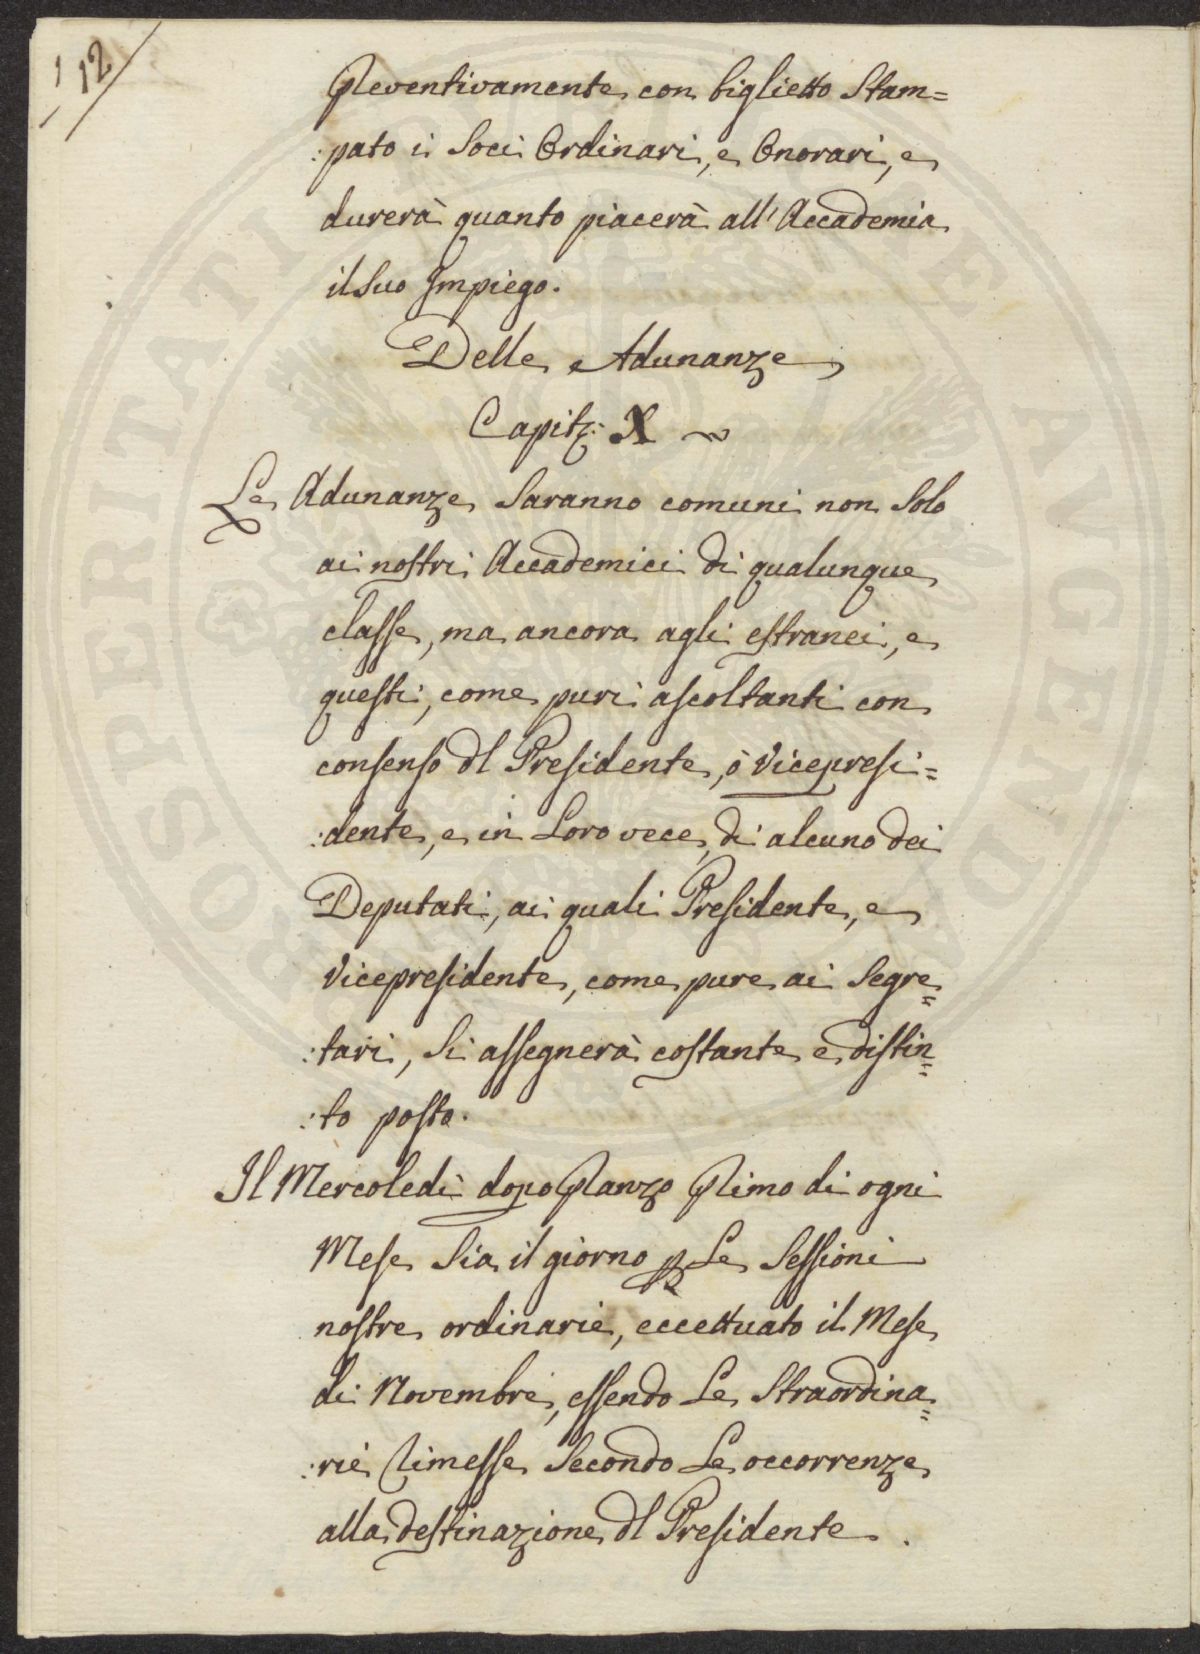 12
Preventivamente con biglietto Stam=
:pato i Soci Ordinari, e Onorari, e
durerà quanto piacerà all'Accademia
il Suo Impiego.
Delle Adunanze
Capit.: X
Le Adunanze Saranno comuni non Solo
ai nostri Accademici di qualunque
classe, ma ancora agli estranei, e
questi, come puri ascoltanti con
consenso dl Presidente, ò Vicepresi=
:dente, e in Loro vece, di alcuno dei
Deputati, ai quali Presidente, e
Vicepresidente, come pure ai Segre=
:tari, Si assegnerà costante e distin=
:to posto.
Il Mercoledì dopo Pranzo Primo di ogni
Mese Sia il giorno p Le Sessioni
nostre ordinarie, eccettuato il Mese
di Novembre, essendo Le Straordina=
:rie rimesse Secondo Le occorrenze
alla destinazione dl Presidente.
PROSPERITATI PUBLICAE AVGENDAE